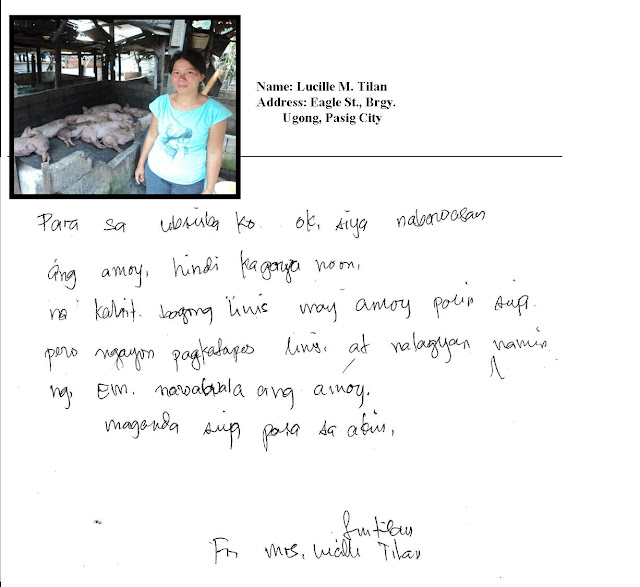 Name: Lucille M. Tilan
Address: Eagle St., Brgy.
Ugong, Pasig City
Para sa ko. ok, siya nabawasan
ang amoy, hindi kagaya noon,
na kahit bagong linis may amoy parin siya.
pero ngayon pagkatapos linis. at nalagyan namin
ng EM. nawawala ang amoy.
maganda siya para sa akin,
Fr. Mrs, Tilan